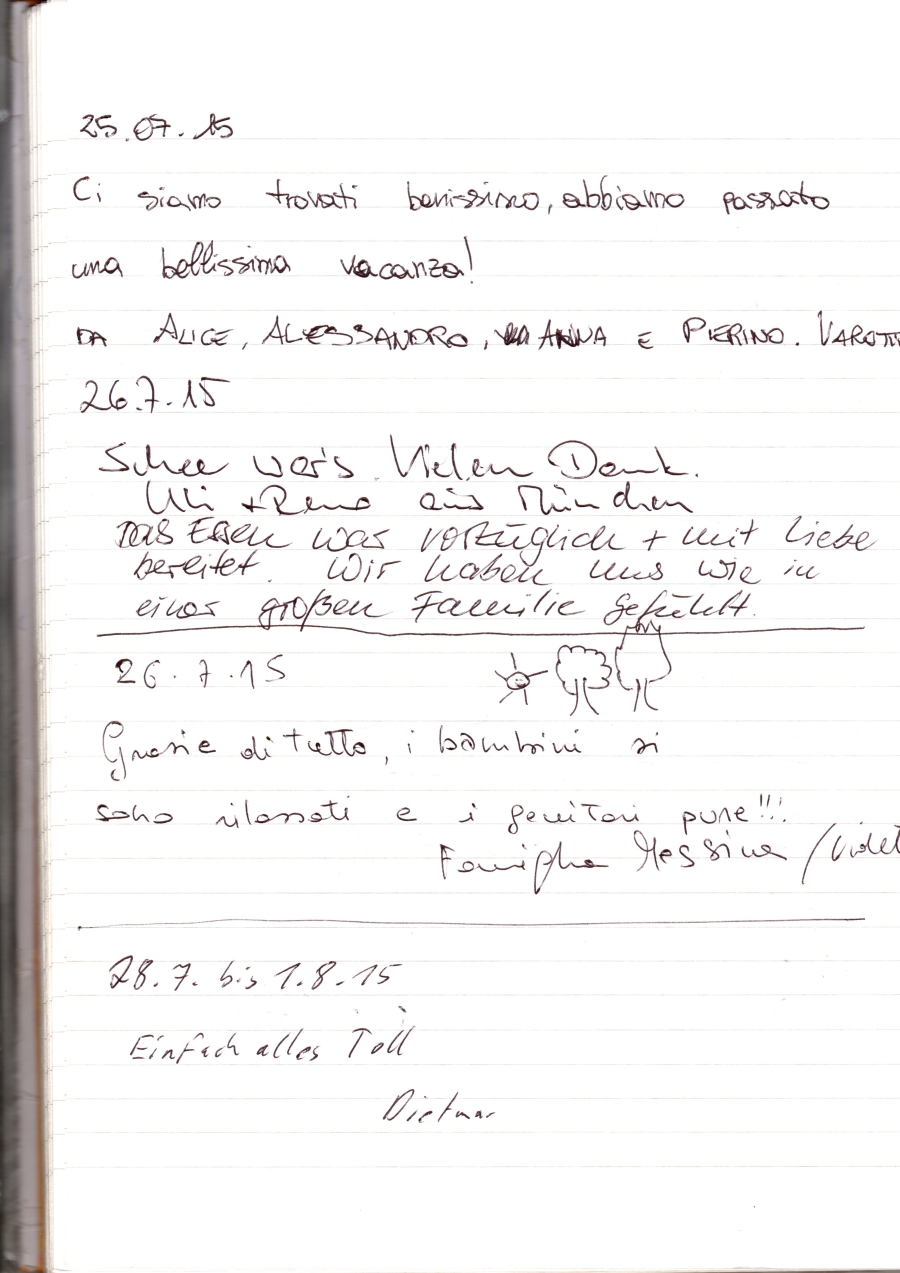 25.07.15
Ci siamo trovati benissimo, abbiamo passato
una bellissima vacanza!
DA ALICE, ALESSANDRO, ANNA E PIERINO. VAROTTI
26.7.15
Schee war's. Vielen Dank.
Uli + Rena aus München
Das Essen war vorzüglich + mit Liebe
bereitet. Wir haben uns wie in
einer großen Familie gefühlt.
26.7.15
Grazie di tutto, i bambini si
sono rilassati e i genitori pure!!!
Famiglia Messina /
28.7. bis 1.8.15
Einfach alles Toll
Dietmar